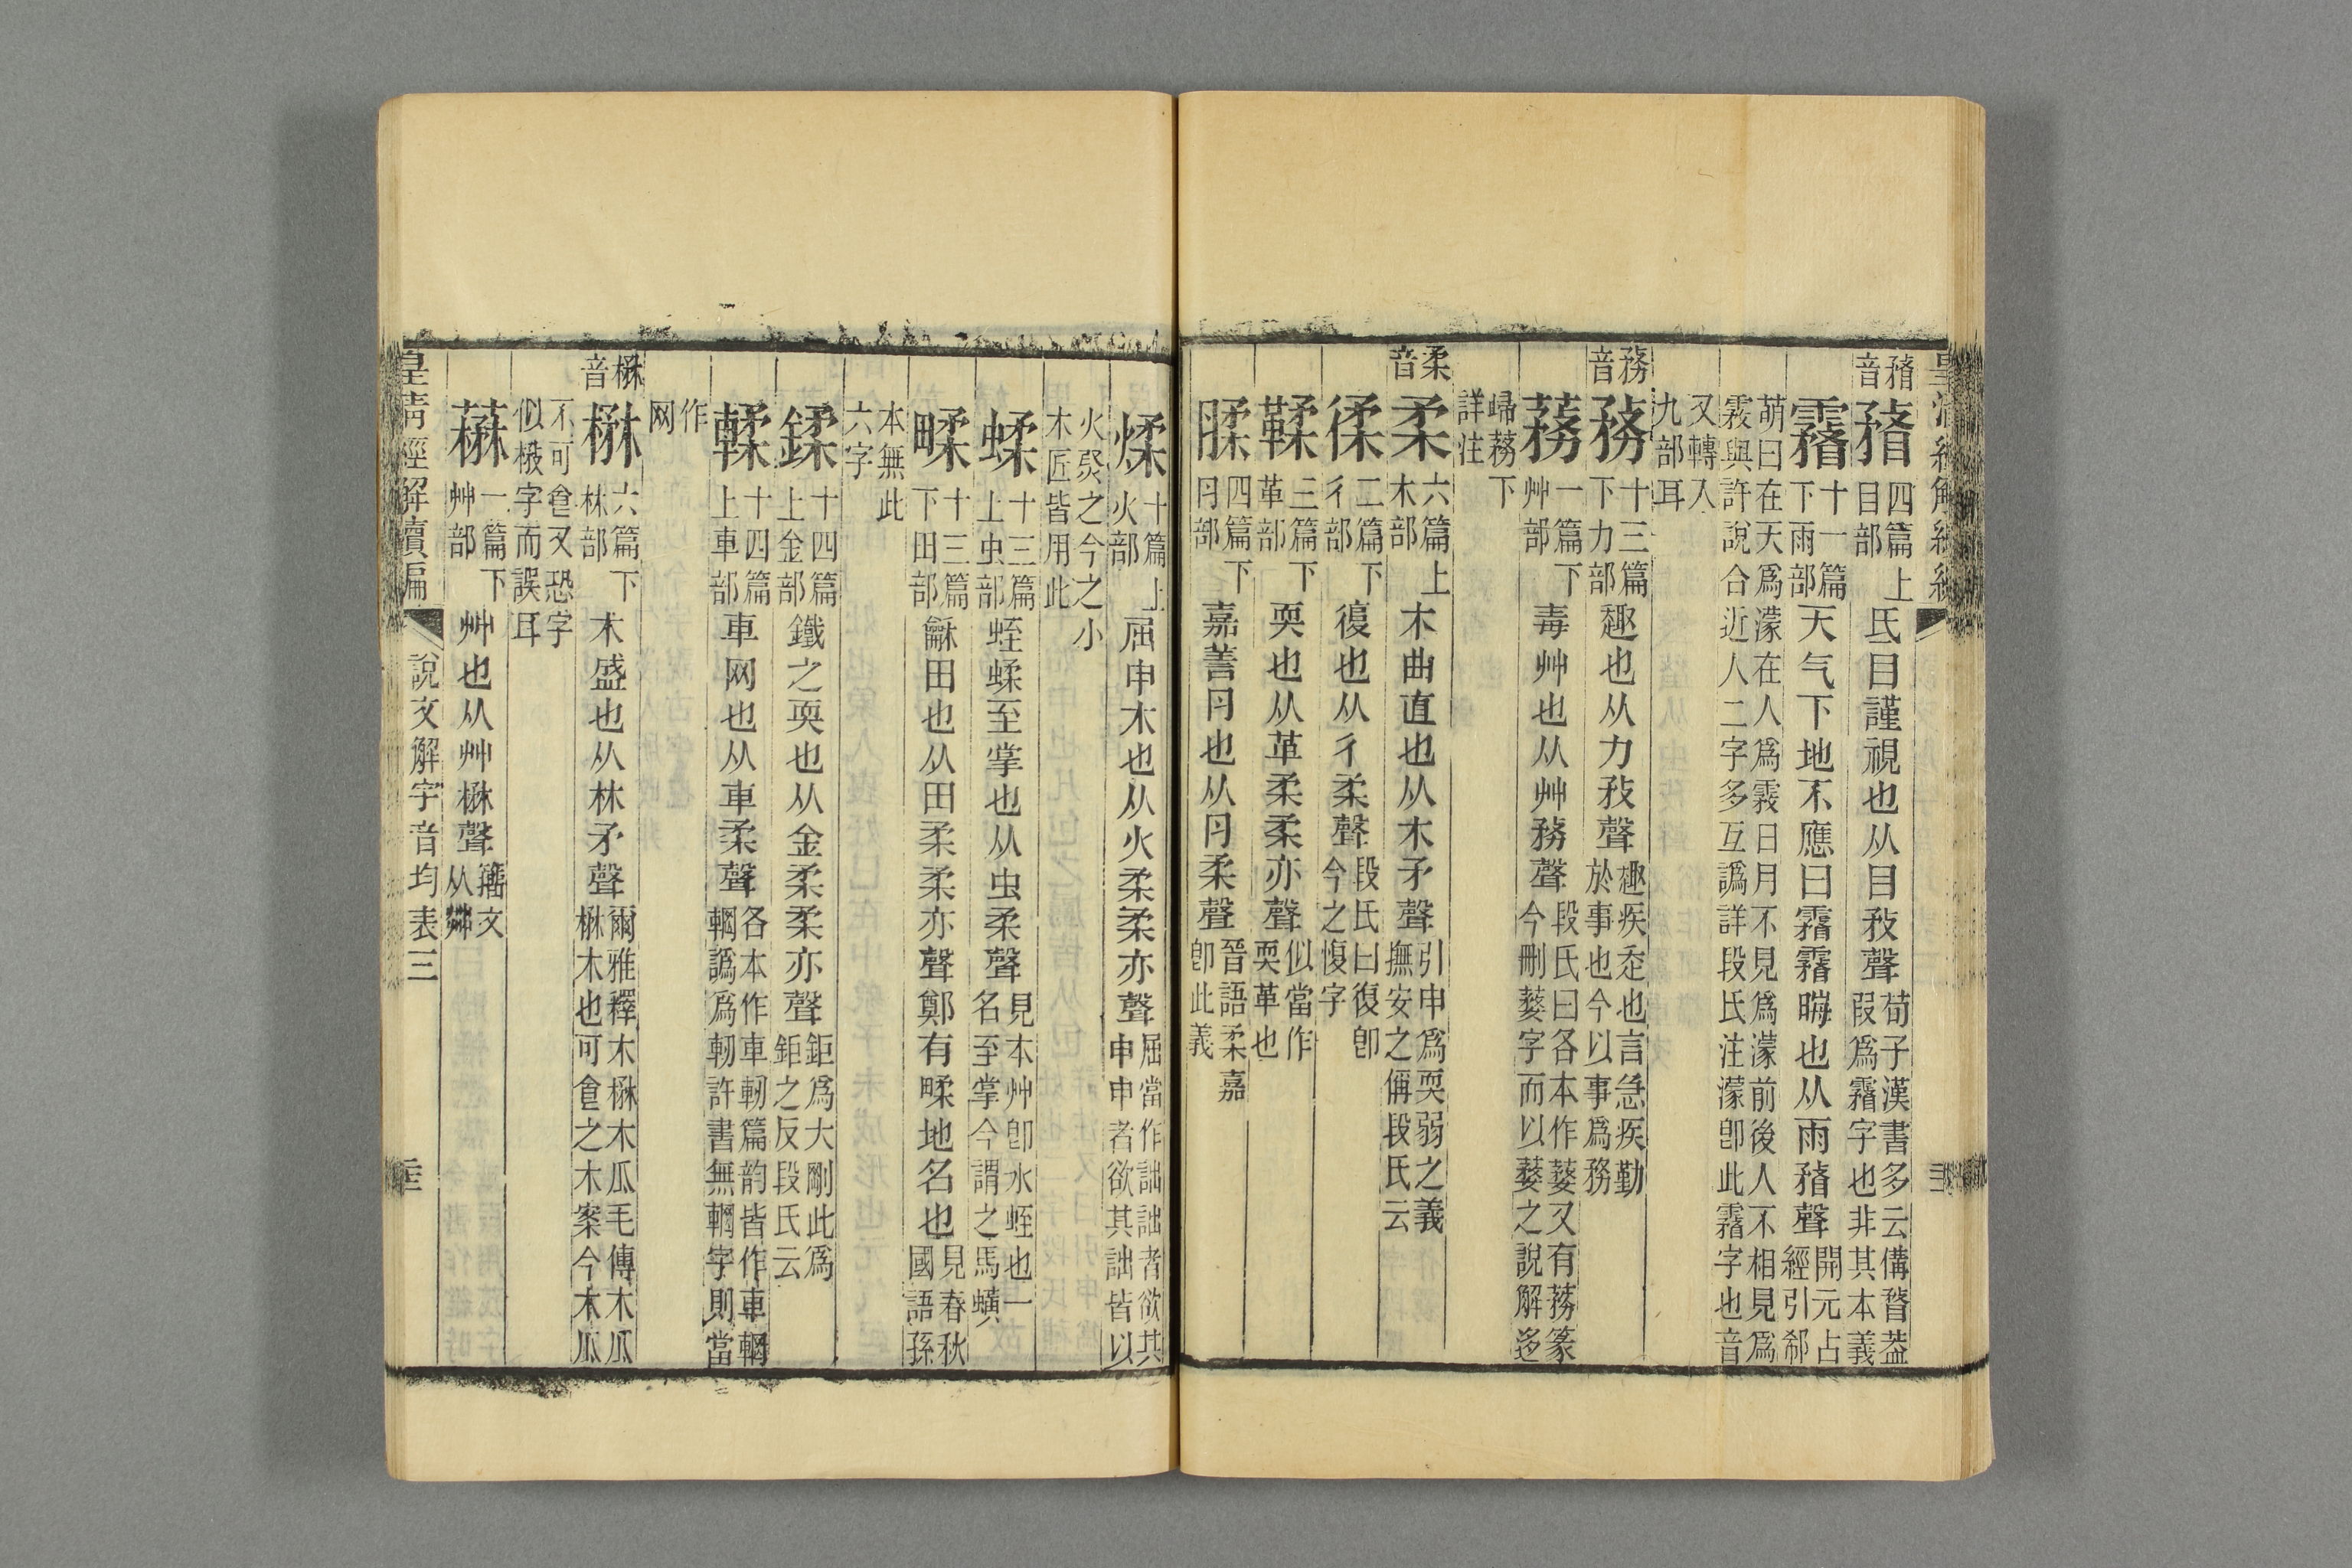 瞀音 瞀 四篇上目部 氐目謹視也从目敄聲 荀子漢書多云傋瞀葢叚爲霿字也非其本義
霿 十一篇下雨部 天气下地不應曰霿霿晦也从雨瞀聲 開元占經引郗
萌曰在天爲濛在人爲霧日月不見爲濛前後人不相見爲霧與許說合近人二字多互譌詳段氏注濛卽此霿字也音
又轉入九部耳
務音 務 十三篇下力部 趣也从力敄聲 趣疾走也言急疾於事也今以事爲務勤
蓩 一篇下艸部 毒艸也从艸務聲 段氏曰各本作蓩又有蓩篆今刪字而以之說解
歸蓩下詳注
柔音 柔 六篇上木部 木曲直也从木矛聲 引申爲耎弱之義撫安之偁段氏云
徖 二篇下彳部 復也从彳柔聲 段氏曰復卽今之愎字
鞣 三篇下革部 耎也从革柔柔亦聲 似當作耎革也
腬 四篇下肉部 嘉善肉也从肉柔聲 晉語柔嘉卽此義
煣 十篇上火部 屈申木也从火柔柔亦聲 屈當作詘詘者欲其申申者欲其詘皆以
火㷊之今之小木匠皆用此
蝚 十三篇上虫部 蛭蝚至掌也从虫柔聲 見本艸卽水蛭也一名至掌今謂之馬蟥
䰆 十三篇下田部 龢田也从田柔柔亦聲鄭有䰆地名也 見春秋國語孫
本無此六字
鍒 十四篇上金部 鐵之耎也从金柔柔亦聲 鉅爲大剛此爲鉅之反段氏云
輮 十四篇上車部 車网也从車柔聲 各本作車軔篇韵皆作車輞輞譌爲軔許書無輞字則當
作网
楙音 楙 六篇下林部 木盛也从林矛聲 爾雅釋木楙木瓜毛傳木瓜楙木也可食之木案今木瓜
不可食又恐字似楙字而誤耳
䒵 一篇下艸部 艸也从艸楙聲 籒文从茻
皇清經解續編 說文解字音均表三